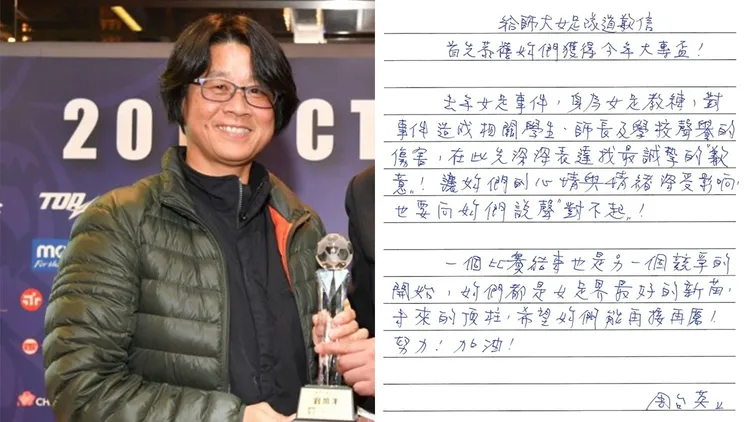 20
CT
TOP
ma
For th
CHA
給師大女足隊道歉信
首先恭禧妳們獲得今年大專盃!
去年女足事件，身為女足教練，對
事件造成相關學生、師長及學校聲譽的
傷害，在此先深深表達我最誠摯的"歉
意"! 讓妳們的心情與情緒深受影响，
也要向妳們說聲"對不起"!
一個比賽結束也是另一個競爭的
開始，妳們都是女足界最好的新苗，
未來的頂柱，希望妳們能再接再厲!
努力! 加油!
周台英